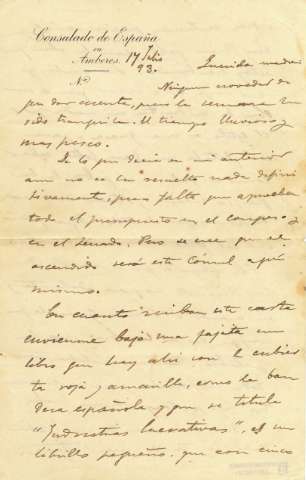 Consulado de España
en
Amberes. 17 Julio
93.
Nº
Querida madre
Ninguna novedad de
que dar cuenta, pues la semana ha
sido tranquila. El tiempo lluvioso y
mas fresco.
De lo que decía en mi anterior
aun no se ha resuelto nada defini
tivamente, pues falta que aprueben
todo el presupuesto en el congreso y
en el Senado. Pero se cree que el
ascendido será este Cónsul aquí
mismo.
En cuanto reciban esta carta
envienme bajo una fajita un
libro que hay ahí con l cubier
ta roja y amarilla, como la ban
dera española y que se titula
"Industrias lucrativas", es un
librillo pequeño. que con cinco